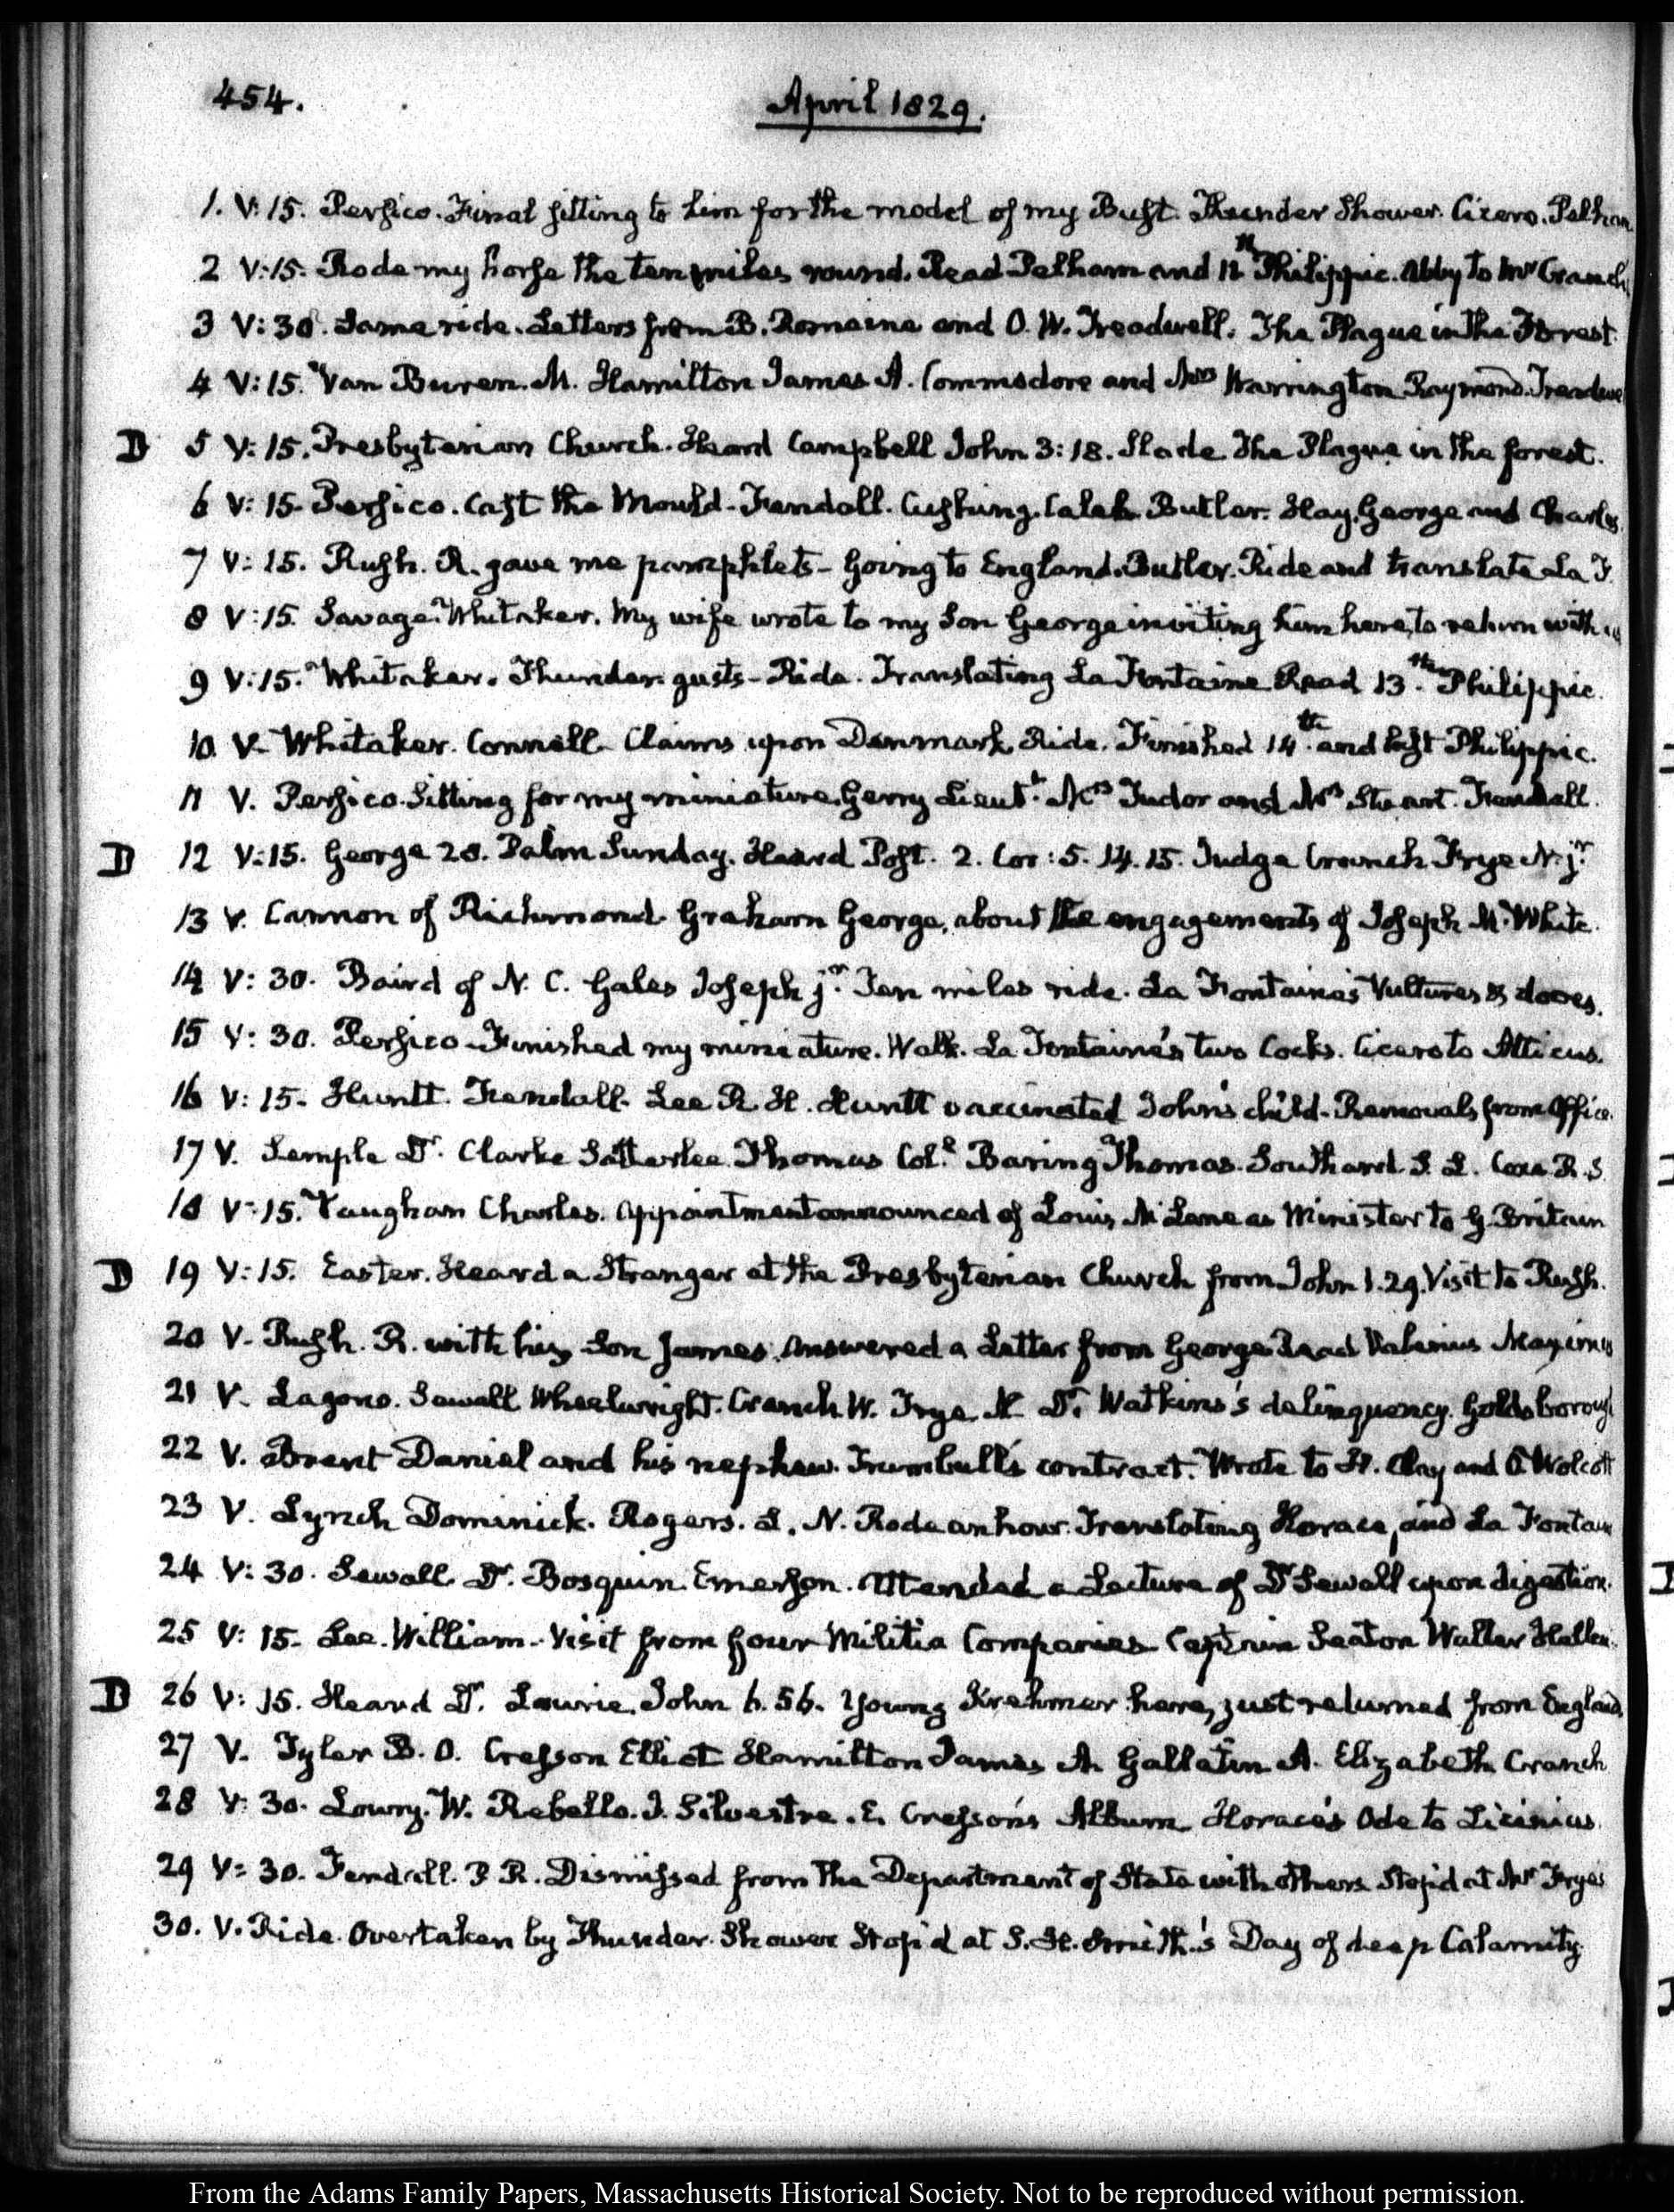 454.
April 1829.
1. V:15. Persico. Final sitting to him for the model of my Bust. Thunder Shower. Cicero. Pelham
2 V:15. Rode my horse the ten miles round. Read Pelham and 12th Philippic. Abby to Mr Cranch
3 V:30. Same ride. Letters from B. Romaine and O. W. Treadwell. The Plague in the Forest.
4 V:15. Van Buren. M. Hamilton James A. Commodore and Mrs Warrington Raymond. Treadwel
D 5 V:15. Presbyterian Church. Heard Campbell John 3:18. Slade The Plague in the forest.
6 V:15. Persico. Cast the Mould. Fendall. Cushing. Caleb. Butler. Hay. George and Charles
7 V:15. Rush. R. gave me pamphlets – Going to England. Butler. Ride and translate La F.
8 V:15. Savage. Whitaker. My wife wrote to my Son George inviting him here, to return with us
9 V:15. Whitaker. Thunder gusts – Ride. Translating La Fontaine Read 13th Philippic.
10. V. Whitaker. Connell. Claims upon Denmark Ride. Finished 14th and last Philippic.
11 V. Persico. Sitting for my miniature. Gerry Lieut. Mrs Tudor and Mrs Stuart. Fendall.
12 V:15. George 28. Palm Sunday. Heard Post. 2. Cor: 5. 14. 15. Judge Cranch Frye N. jr.
D
13 V. Cannon of Richmond. Graham George, about the engagements of Joseph M. White.
14 V:30. Baird of N. C. Gales Joseph jr. Ten miles ride. La Fontaine's Vultures & doves.
15 V:30. Persico. Finished my miniature. Walk. La Fontaine's two Cocks. Cicero to Atticus.
16 V:15. Huntt. Fendall. Lee R. H. Huntt vaccinated John's child. Removals from Office.
17 V. Semple Dr. Clarke Satterlee. Thomas Col. Baring Thomas. Southard S. L. Coxe R. S.
18 V:15. Vaughan Charles. Appointment announced of Louis McLane as Minister to G. Britain
D 19 V:15. Easter. Heard a Stranger at the Presbyterian Church from John 1. 29. Visit to Rush.
20 V. Rush. R. with his Son James. Answered a Letter from George. Read Valerius Maximus
21 V. Lagono. Sewall Wheelwright. Cranch W. Frye. N. Dr. Watkins's delinquency. Goldsborough
22 V. Brent Daniel and his nephew. Trumbull's contract. Wrote to H. Clay and O Wolcott
23 V. Lynch Dominick. Rogers. L. N. Rode an hour. Translating Horace, and La Fontain
24 V:30. Sewall Dr. Bosquin Emerson. Attended a Lecture of Dr Sewall upon digestion.
25 V:15. Lee. William. Visit from four Militia Companies Captain Seaton Waller Hallen.
D 26 V:15. Heard Dr. Laurie. John 6. 56. Young Krehmer here, just returned from England.
27 V. Tyler B. O. Cresson Elliot Hamilton James A. Gallatin A. Elizabeth Cranch
28 V:30. Lowry. W. Rebello. J. Silvestre. E. Cresson's Album Horace's Ode to Licinius.
29 V:30. Fendall. P. R. Dismissed from the Department of State with others. Stop'd at Mr Frye's
30. V. Ride. Overtaken by Thunder Shower Stop'd at S. H. Smith's Day of deep Calamity.
From the Adams Family Papers, Massachusetts Historical Society. Not to be reproduced without permission.